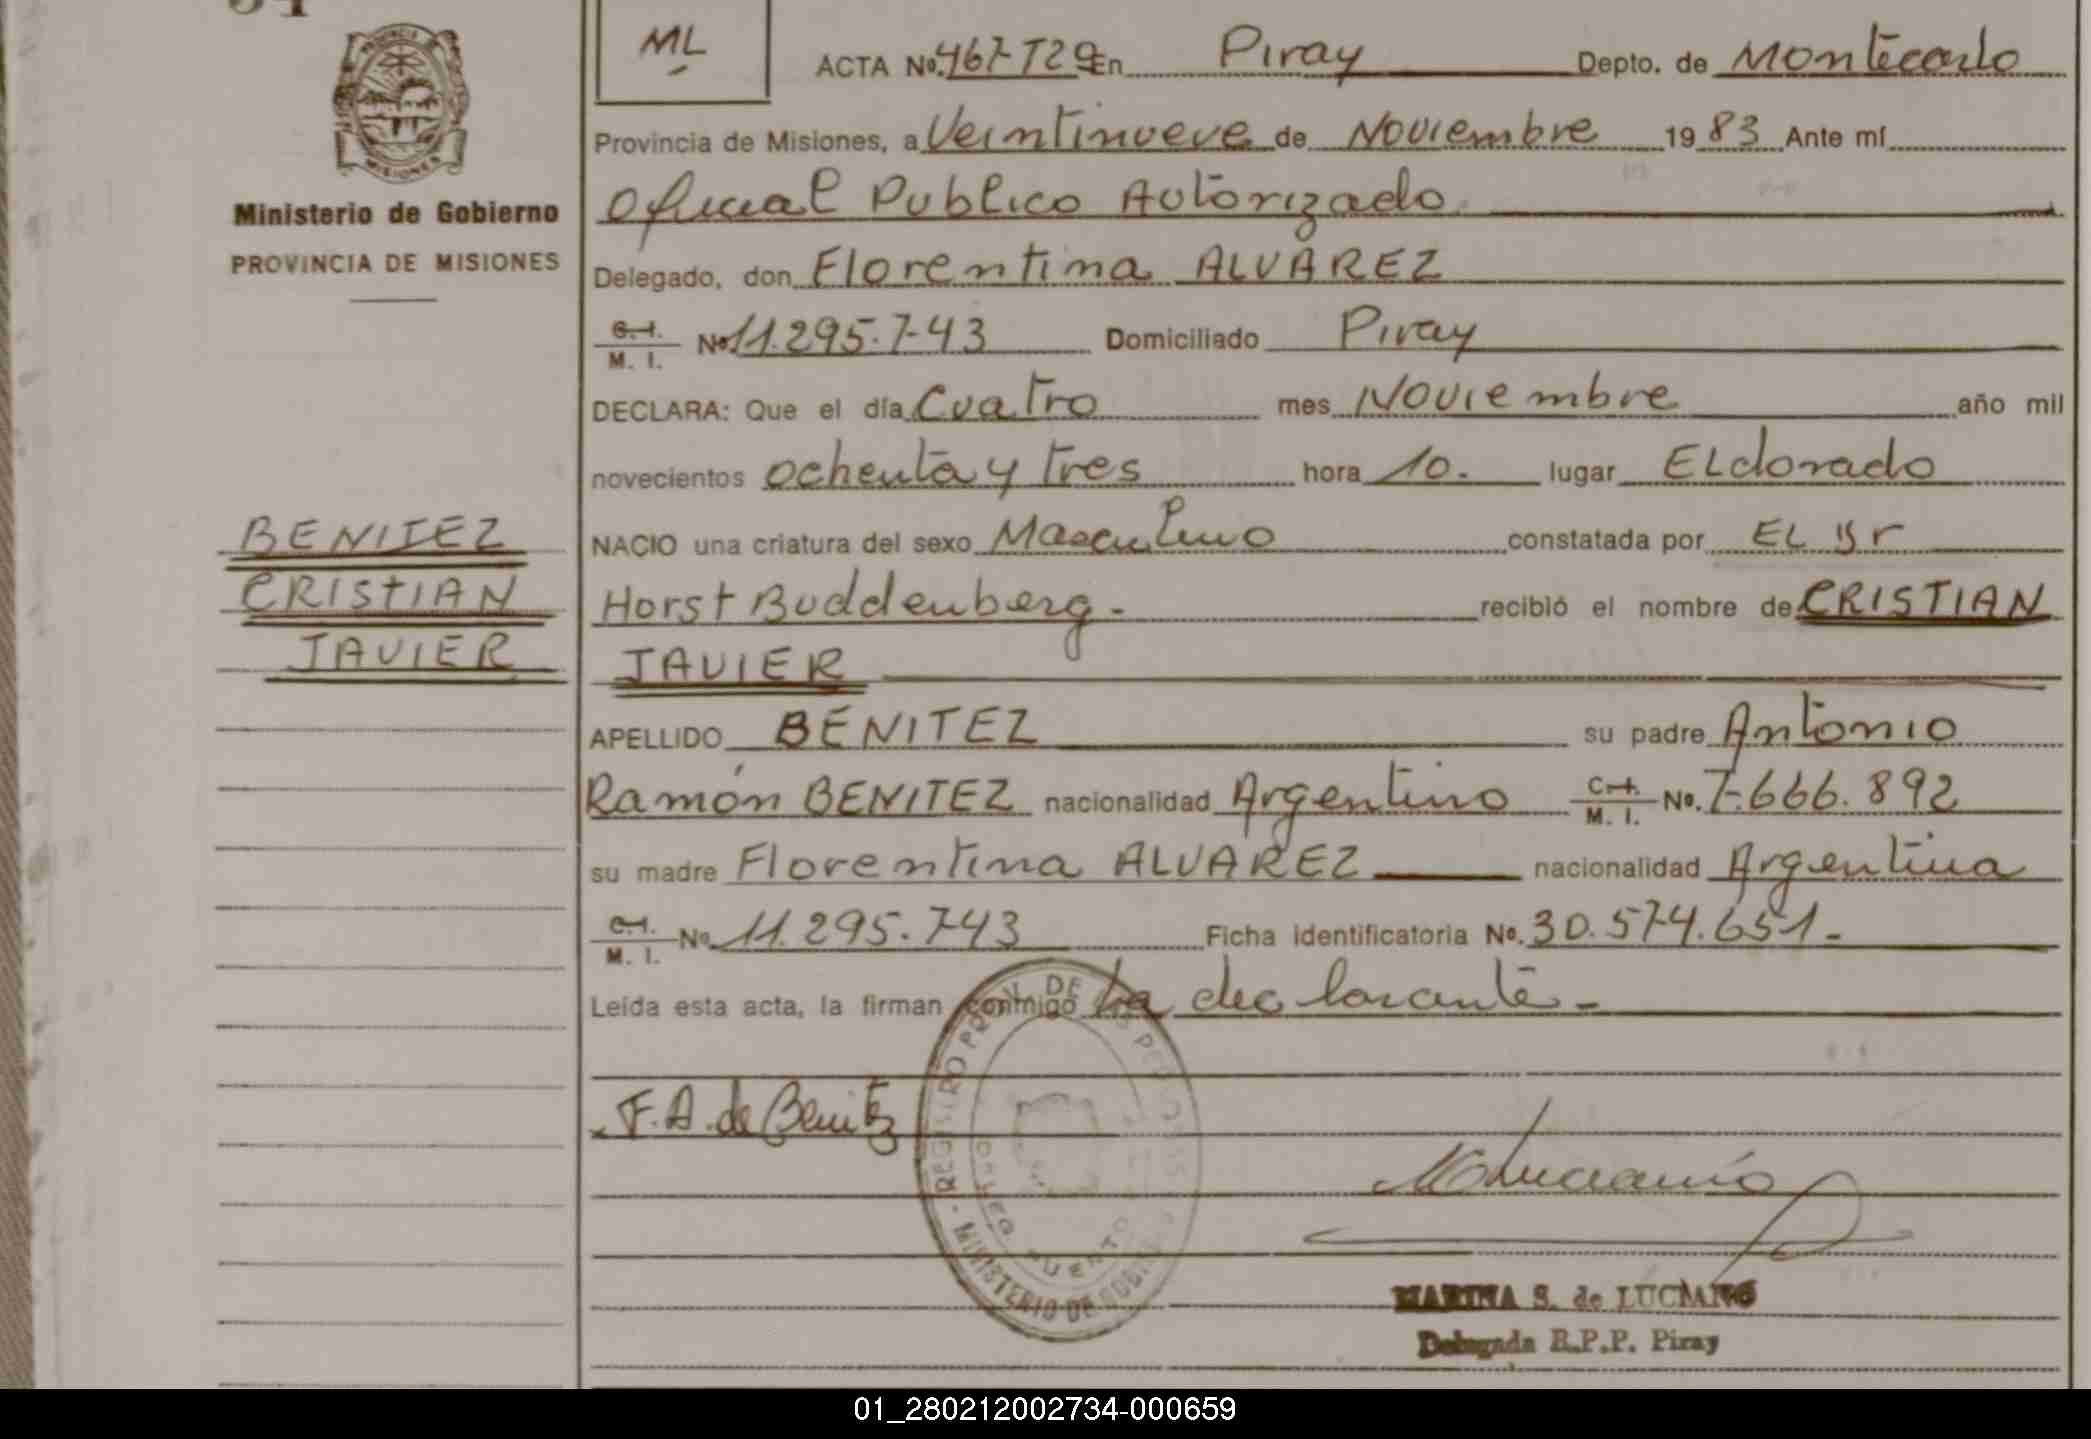 PROVINCIA DE
MISIONES
Ministerio de Gobierno
PROVINCIA DE MISIONES
BENITEZ
CRISTIAN
JAVIER
ML
ACTA Nº. 467-T2º En Piray Depto. de Montecarlo
Provincia de Misiones, a Veintinueve de Noviembre 1983 Ante mí
Oficial Publico Autorizado
Delegado, don Florentina ALVAREZ
C. I. M. I. Nº 11.295.743 Domiciliado Piray
DECLARA: Que el día Cuatro mes Noviembre año mil
novecientos ochenta y tres hora 10. lugar ELdorado
NACIO una criatura del sexo Masculino constatada por EL Dr
Horst Buddenberg. recibió el nombre de CRISTIAN
JAVIER
APELLIDO BENITEZ su padre Antonio
Ramón BENITEZ nacionalidad Argentino C. I. M. I. Nº. 7.666.892
su madre Florentina ALVAREZ nacionalidad Argentina
C. I. M. I. Nº 11.295.743 Ficha identificatoria Nº. 30.574.651.-
Leída esta acta, la firman conmigo la declarante-
F. A. de Benitez
REGISTRO PROV. DE LAS PERSONAS
MINISTERIO DE GOBIERNO
MARINA S. de LUCIANO
Delegada R.P.P. Piray
01_280212002734-000659